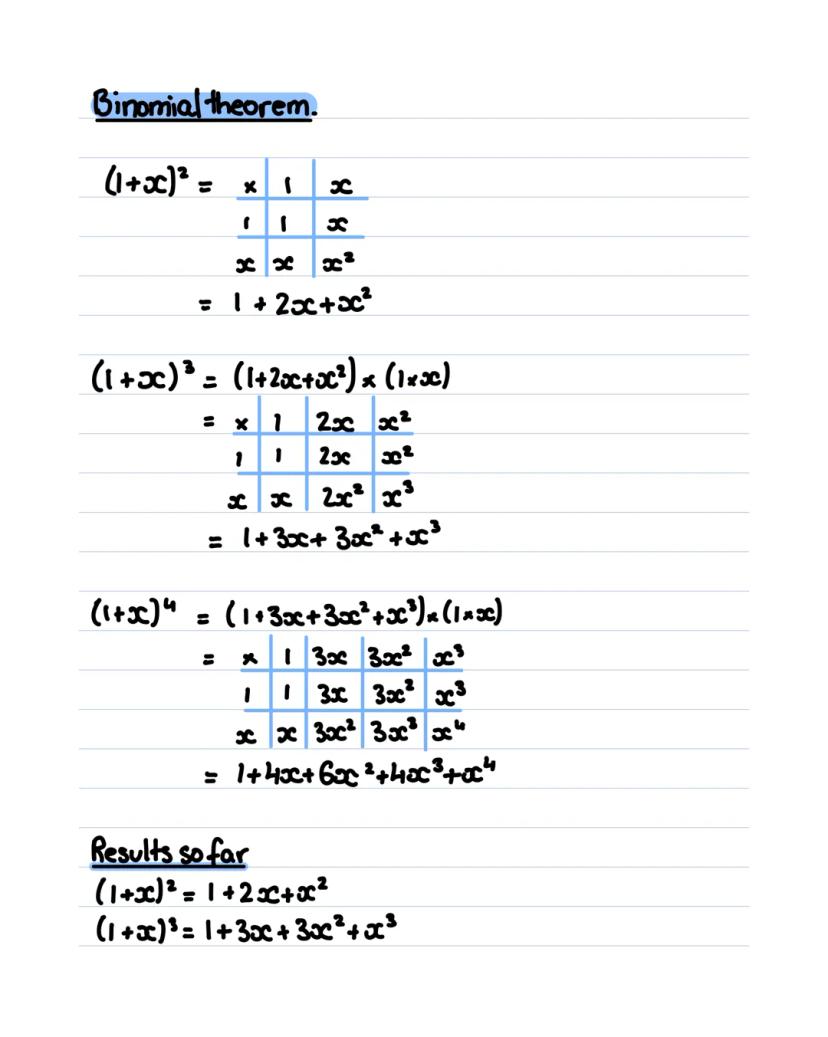 Binomial theorem.
(1+x)² = × 1 x
1 1 x
x x x²
= 1 + 2x + x²
(1+x)³ = (1+2x+x²) × (1×x)
= × 1 2x x²
1 1 2x x²
x x 2x² x³
= 1+3x+ 3x² +x³
(1+x)⁴ = (1+3x+3x²+x³)×(1×x)
= × 1 3x 3x² x³
1 1 3x 3x² x³
x x 3x² 3x³ x⁴
= 1+4x+6x²+4x³+x⁴
Results so far
(1+x)² = 1+2x+x²
(1+x)³ = 1+3x+3x²+x³